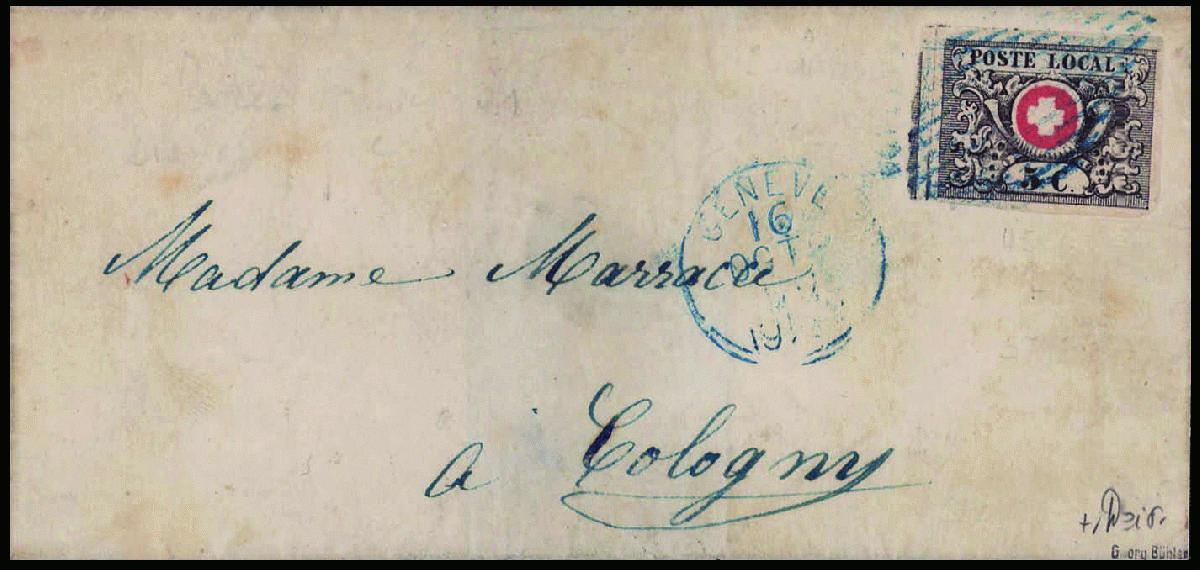 POSTE LOCALE
5 C.
GENEVE
16
OCT
Madame Marracci
a Cologny
Georg Bühler